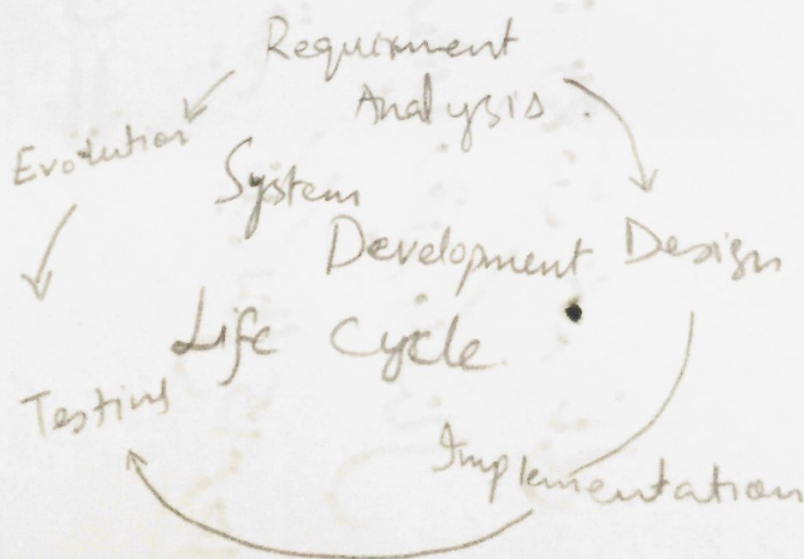 Requirment
Analysis
Evolution
System
Development
Design
Life Cycle
Testing
Implementation